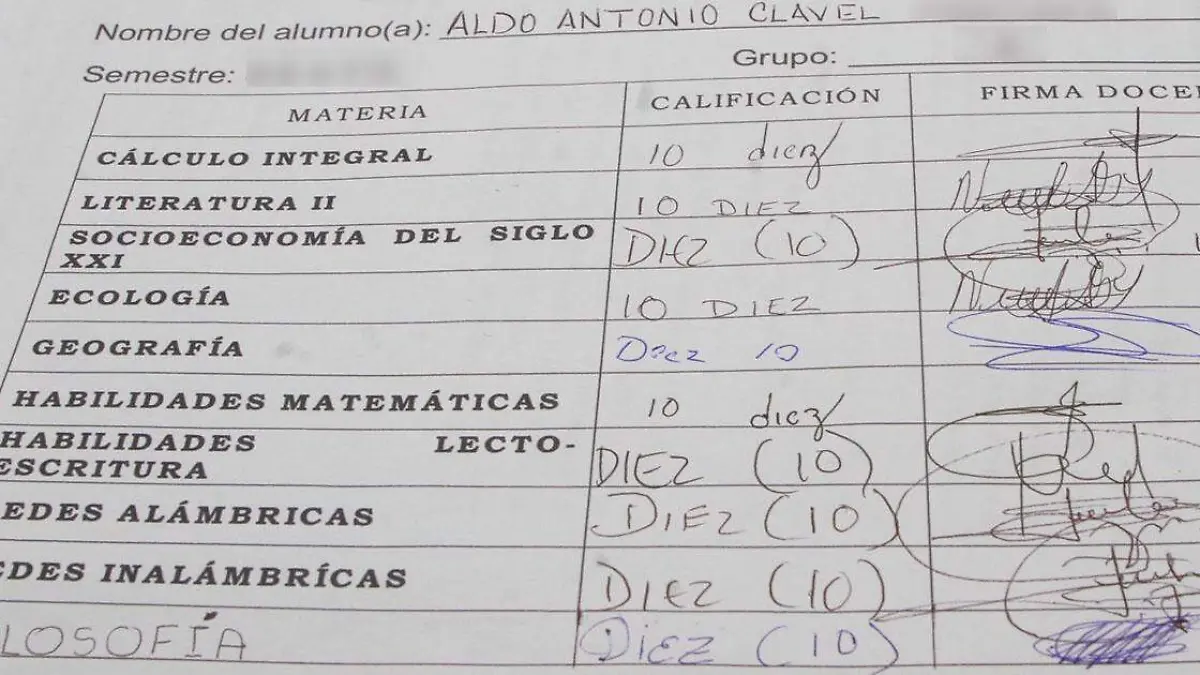 Nombre del alumno(a): ALDO ANTONIO CLAVEL
Grupo:
Semestre:
MATERIA CALIFICACIÓN FIRMA DOCE
CÁLCULO INTEGRAL 10 diez
LITERATURA II 10 DIEZ
SOCIOECONOMÍA DEL SIGLO
XXI DIEZ (10)
ECOLOGÍA 10 DIEZ
GEOGRAFÍA Diez 10
HABILIDADES MATEMÁTICAS 10 diez
HABILIDADES LECTO-
ESCRITURA DIEZ (10)
EDES ALÁMBRICAS DIEZ (10)
EDES INALÁMBRÍCAS DIEZ (10)
LOSOFÍA DIEZ (10)